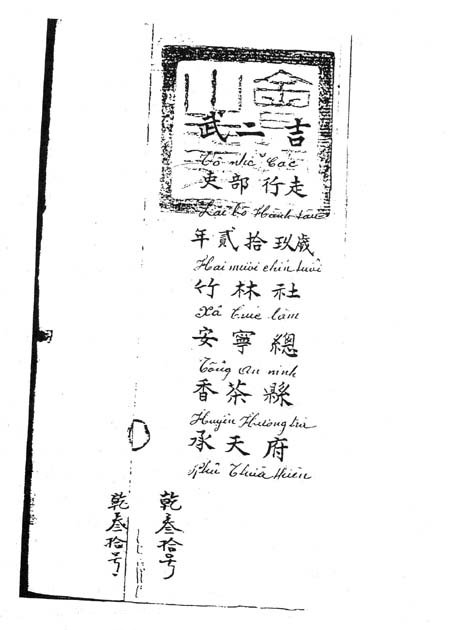 武二吉
Võ nhị
吏部行走
Lại bộ Hành tẩu
年貳拾玖歲
Hai mươi chín tuổi
竹林社
Xã Trúc lâm
安寧總
Tổng An ninh
香茶縣
Huyện Hương trà
承天府
Phủ Thừa thiên
乾叁拾号
乾叁拾号